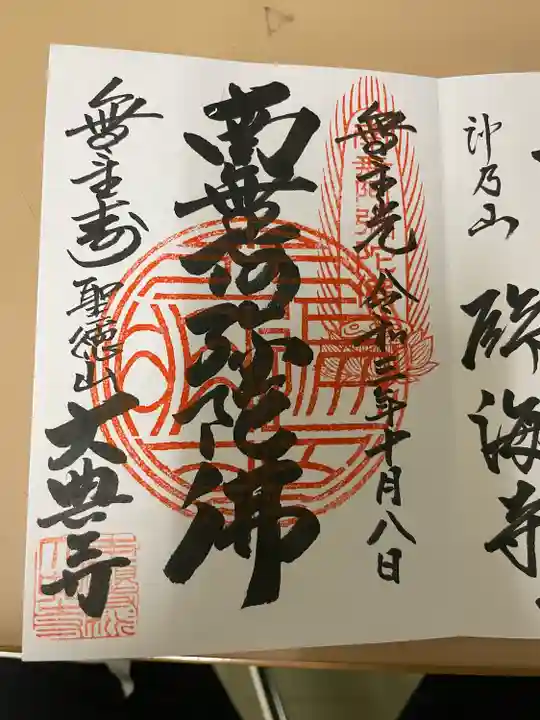 神乃山
臨海寺
無量光 令和三年十月八日
南無阿弥陀佛
無量寿 聖徳山
大典寺